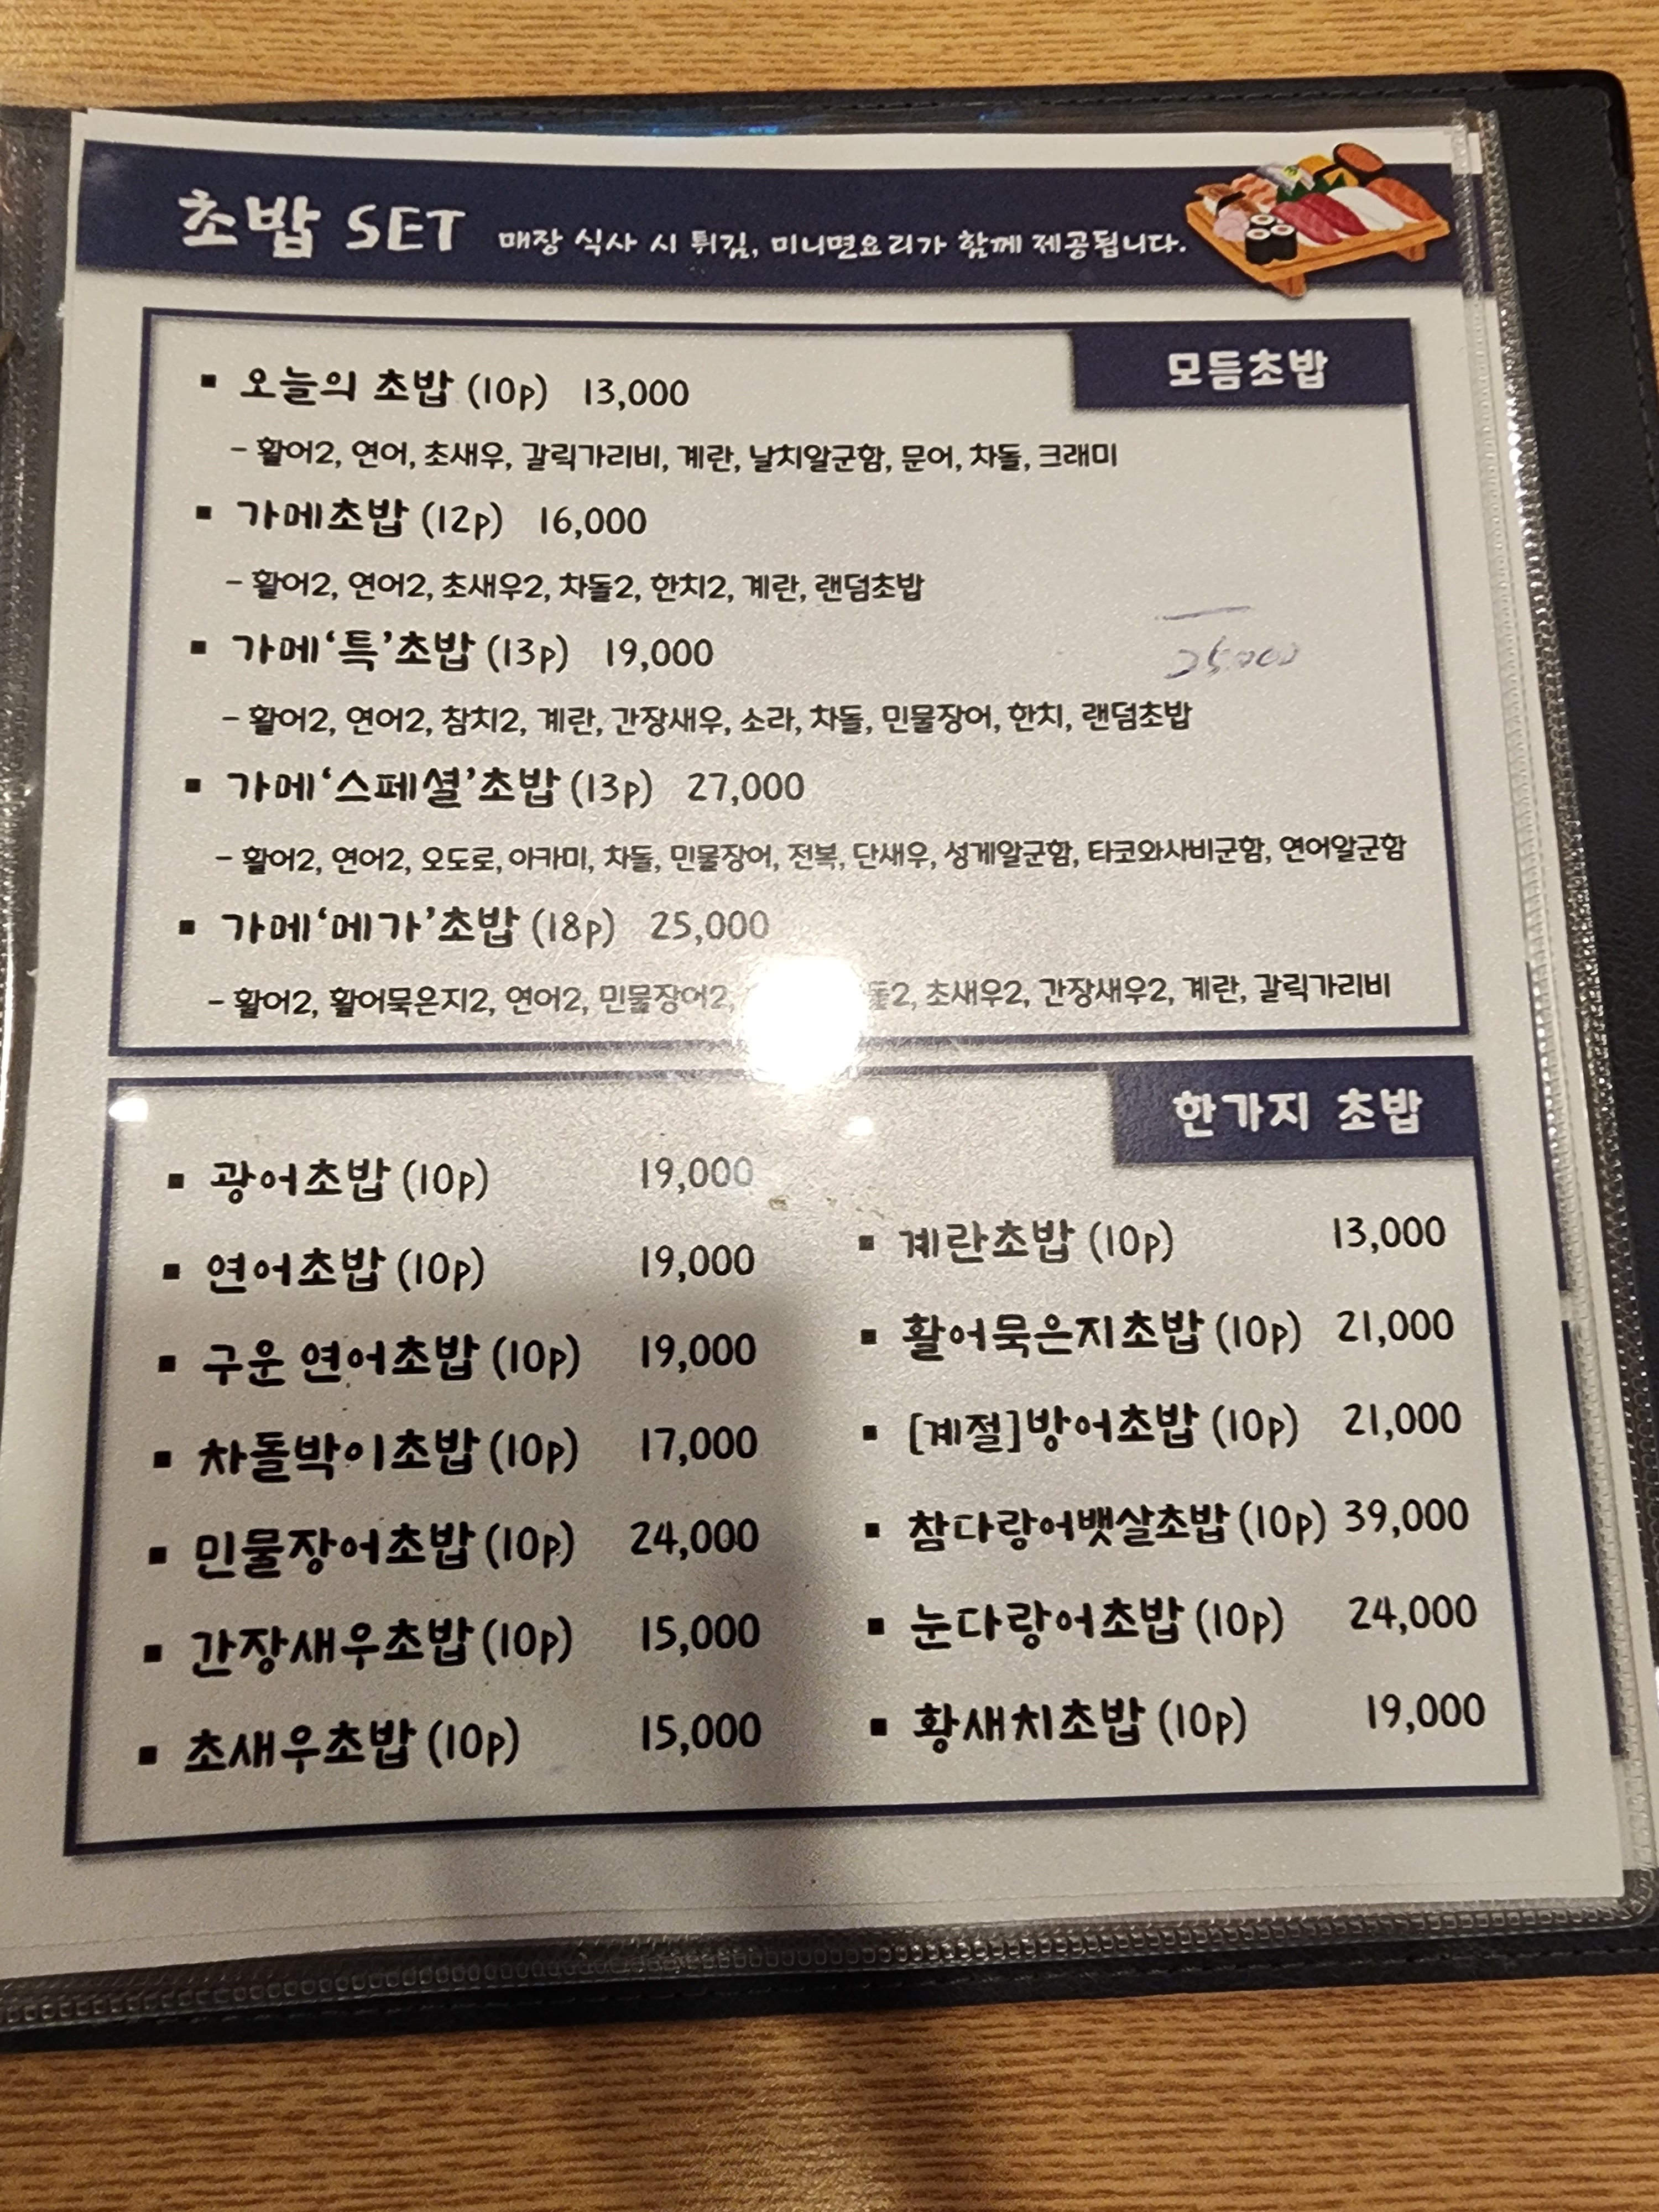 초밥 SET 매장 식사 시 튀김, 미니면요리가 함께 제공됩니다.
모듬초밥
▪ 오늘의 초밥 (10p) 13,000
- 활어2, 연어, 초새우, 갈릭가리비, 계란, 날치알군함, 문어, 차돌, 크래미
▪ 가메초밥 (12p) 16,000
- 활어2, 연어2, 초새우2, 차돌2, 한치2, 계란, 랜덤초밥
▪ 가메‘특’초밥 (13p) 19,000
25,000
- 활어2, 연어2, 참치2, 계란, 간장새우, 소라, 차돌, 민물장어, 한치, 랜덤초밥
▪ 가메‘스페셜’초밥 (13p) 27,000
- 활어2, 연어2, 오도로, 아카미, 차돌, 민물장어, 전복, 단새우, 성게알군함, 타코와사비군함, 연어알군함
▪ 가메‘메가’초밥 (18p) 25,000
- 활어2, 활어묵은지2, 연어2, 민물장어2, 초새우2, 간장새우2, 계란, 갈릭가리비
한가지 초밥
▪ 광어초밥 (10p) 19,000
▪ 연어초밥 (10p) 19,000
▪ 구운 연어초밥 (10p) 19,000
▪ 차돌박이초밥 (10p) 17,000
▪ 민물장어초밥 (10p) 24,000
▪ 간장새우초밥 (10p) 15,000
▪ 초새우초밥 (10p) 15,000
▪ 계란초밥 (10p) 13,000
▪ 활어묵은지초밥 (10p) 21,000
▪ [계절]방어초밥 (10p) 21,000
▪ 참다랑어뱃살초밥 (10p) 39,000
▪ 눈다랑어초밥 (10p) 24,000
▪ 황새치초밥 (10p) 19,000